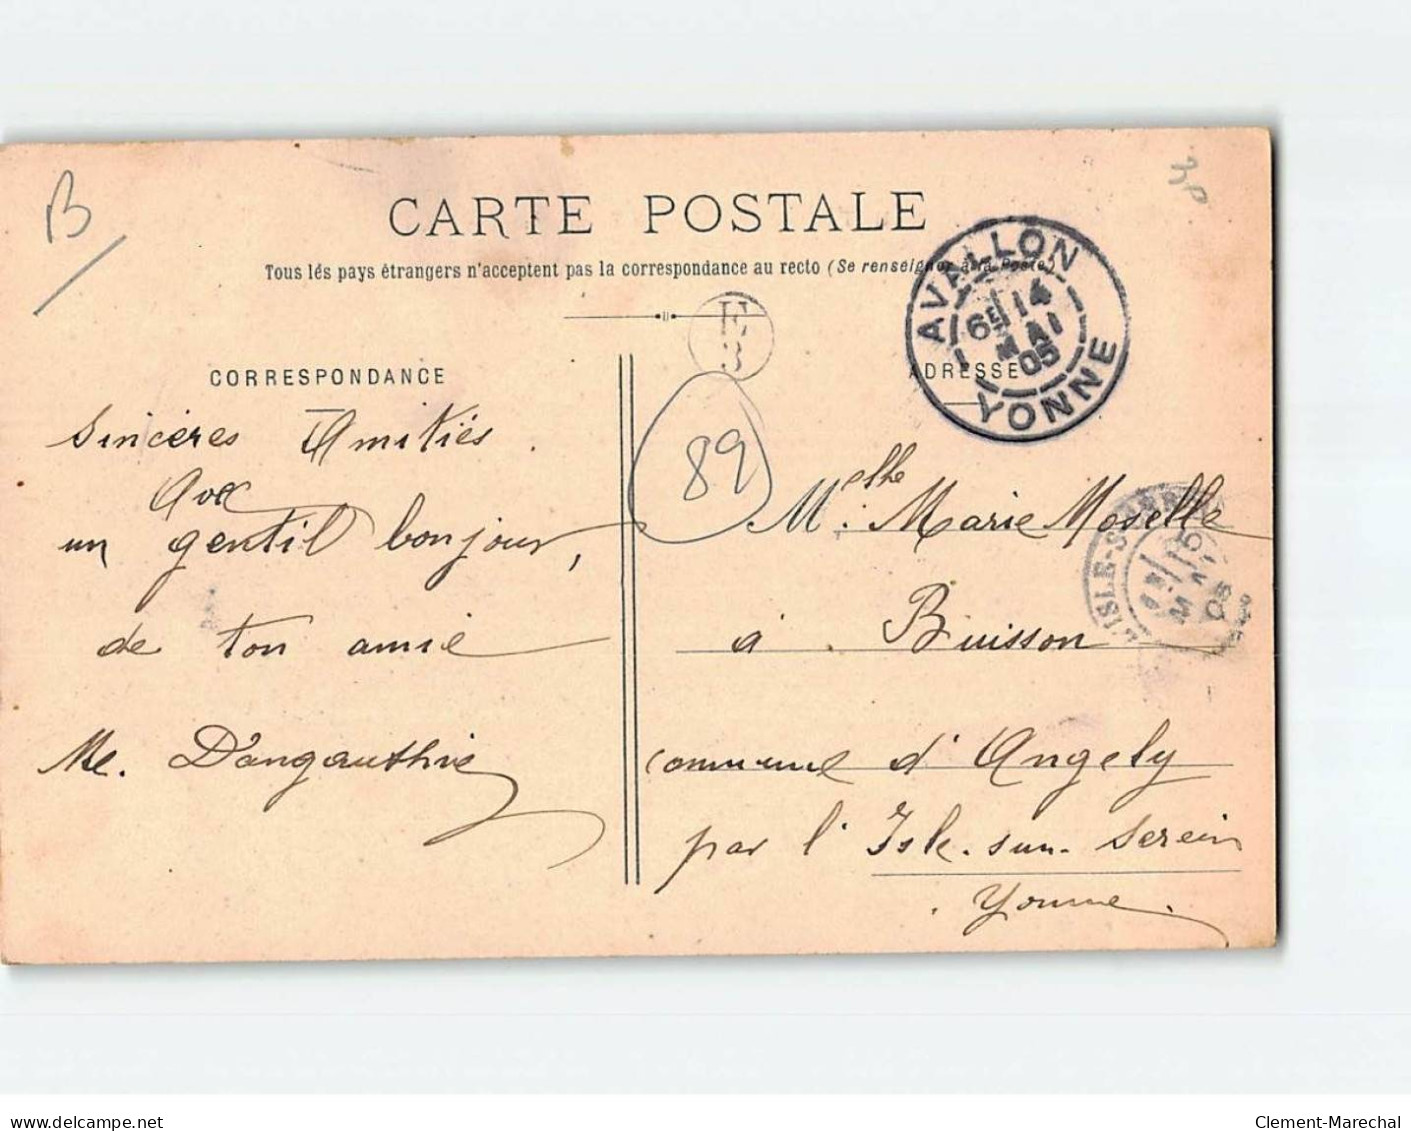 B
30
CARTE POSTALE
Tous lés pays étrangers n'acceptent pas la correspondance au recto (Se renseigner à la Poste)
AVALLON
6E 14
MAI
05
YONNE
E
3
CORRESPONDANCE
ADRESSE
89
Sincères Amitiés.
Avec
un gentil bonjour,
de ton amie
Me. Dangauthie
Melle Marie Moselle
à Buisson
commune d'Angely
par l'Isle-sur-Serein
Yonne.
L'ISLE-S-SEREIN
15
MAI
05
delcampe.net
Clement-Marechal